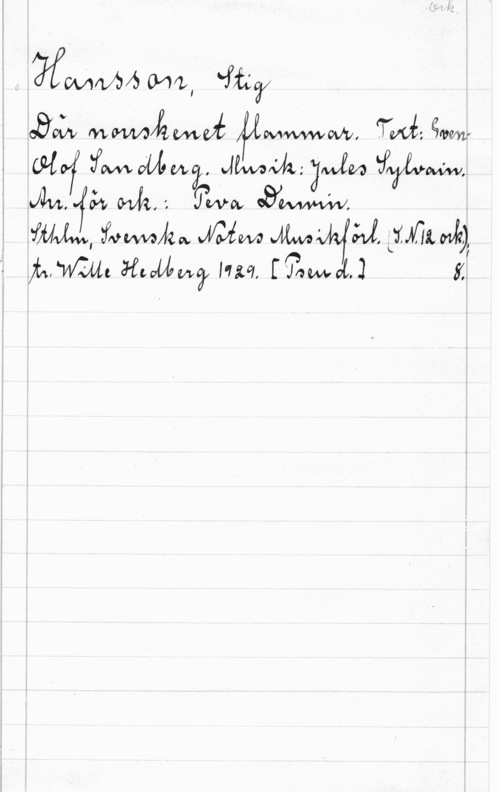 ork.
Hansson, Stig
Där norrskenet flammar. Text: Sven-
Olof Sandberg. Musik: Jules Sylvain.
Arr. för ork.: Peva Derwin.
Sthlm, Svenska Noters Musikförl. (S.N 12 ork),
tr. Wille Hedberg 1929. [Pseud.] 8.